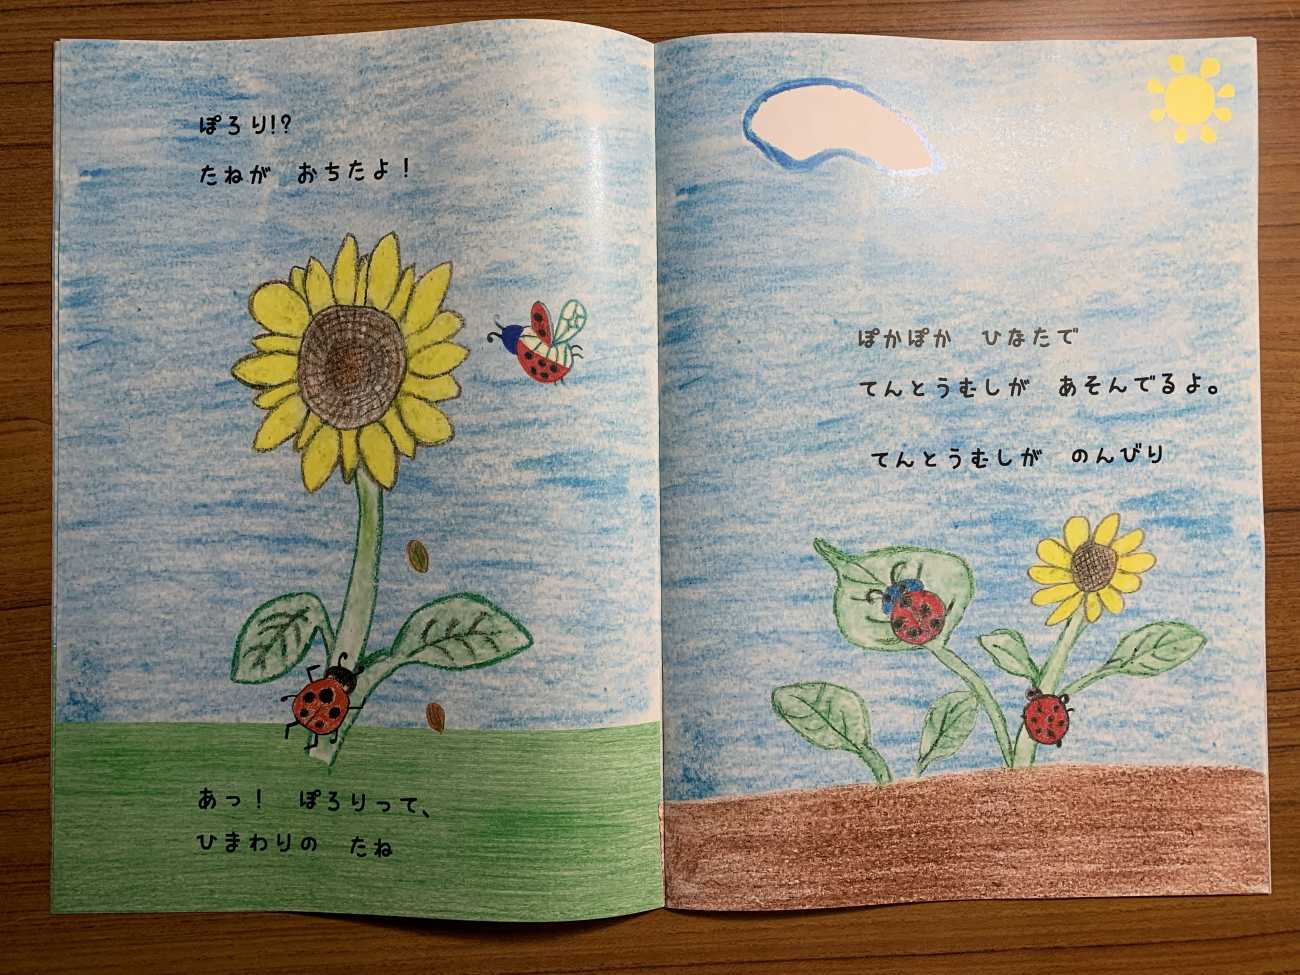 ぽろり!?
たねが　おちたよ！
あっ！　ぽろりって、
ひまわりの　たね
ぽかぽか　ひなたで
てんとうむしが　あそんでるよ。
てんとうむしが　のんびり